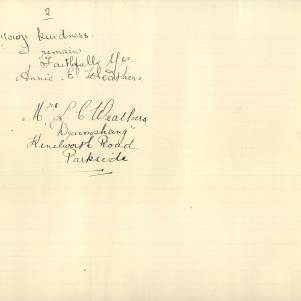 2
your kindness.
I remain
Faithfully Yrs
Annie E Weathers
Mrs L. C. Weathers
"Drumshang"
Kenilworth Road
Parkside